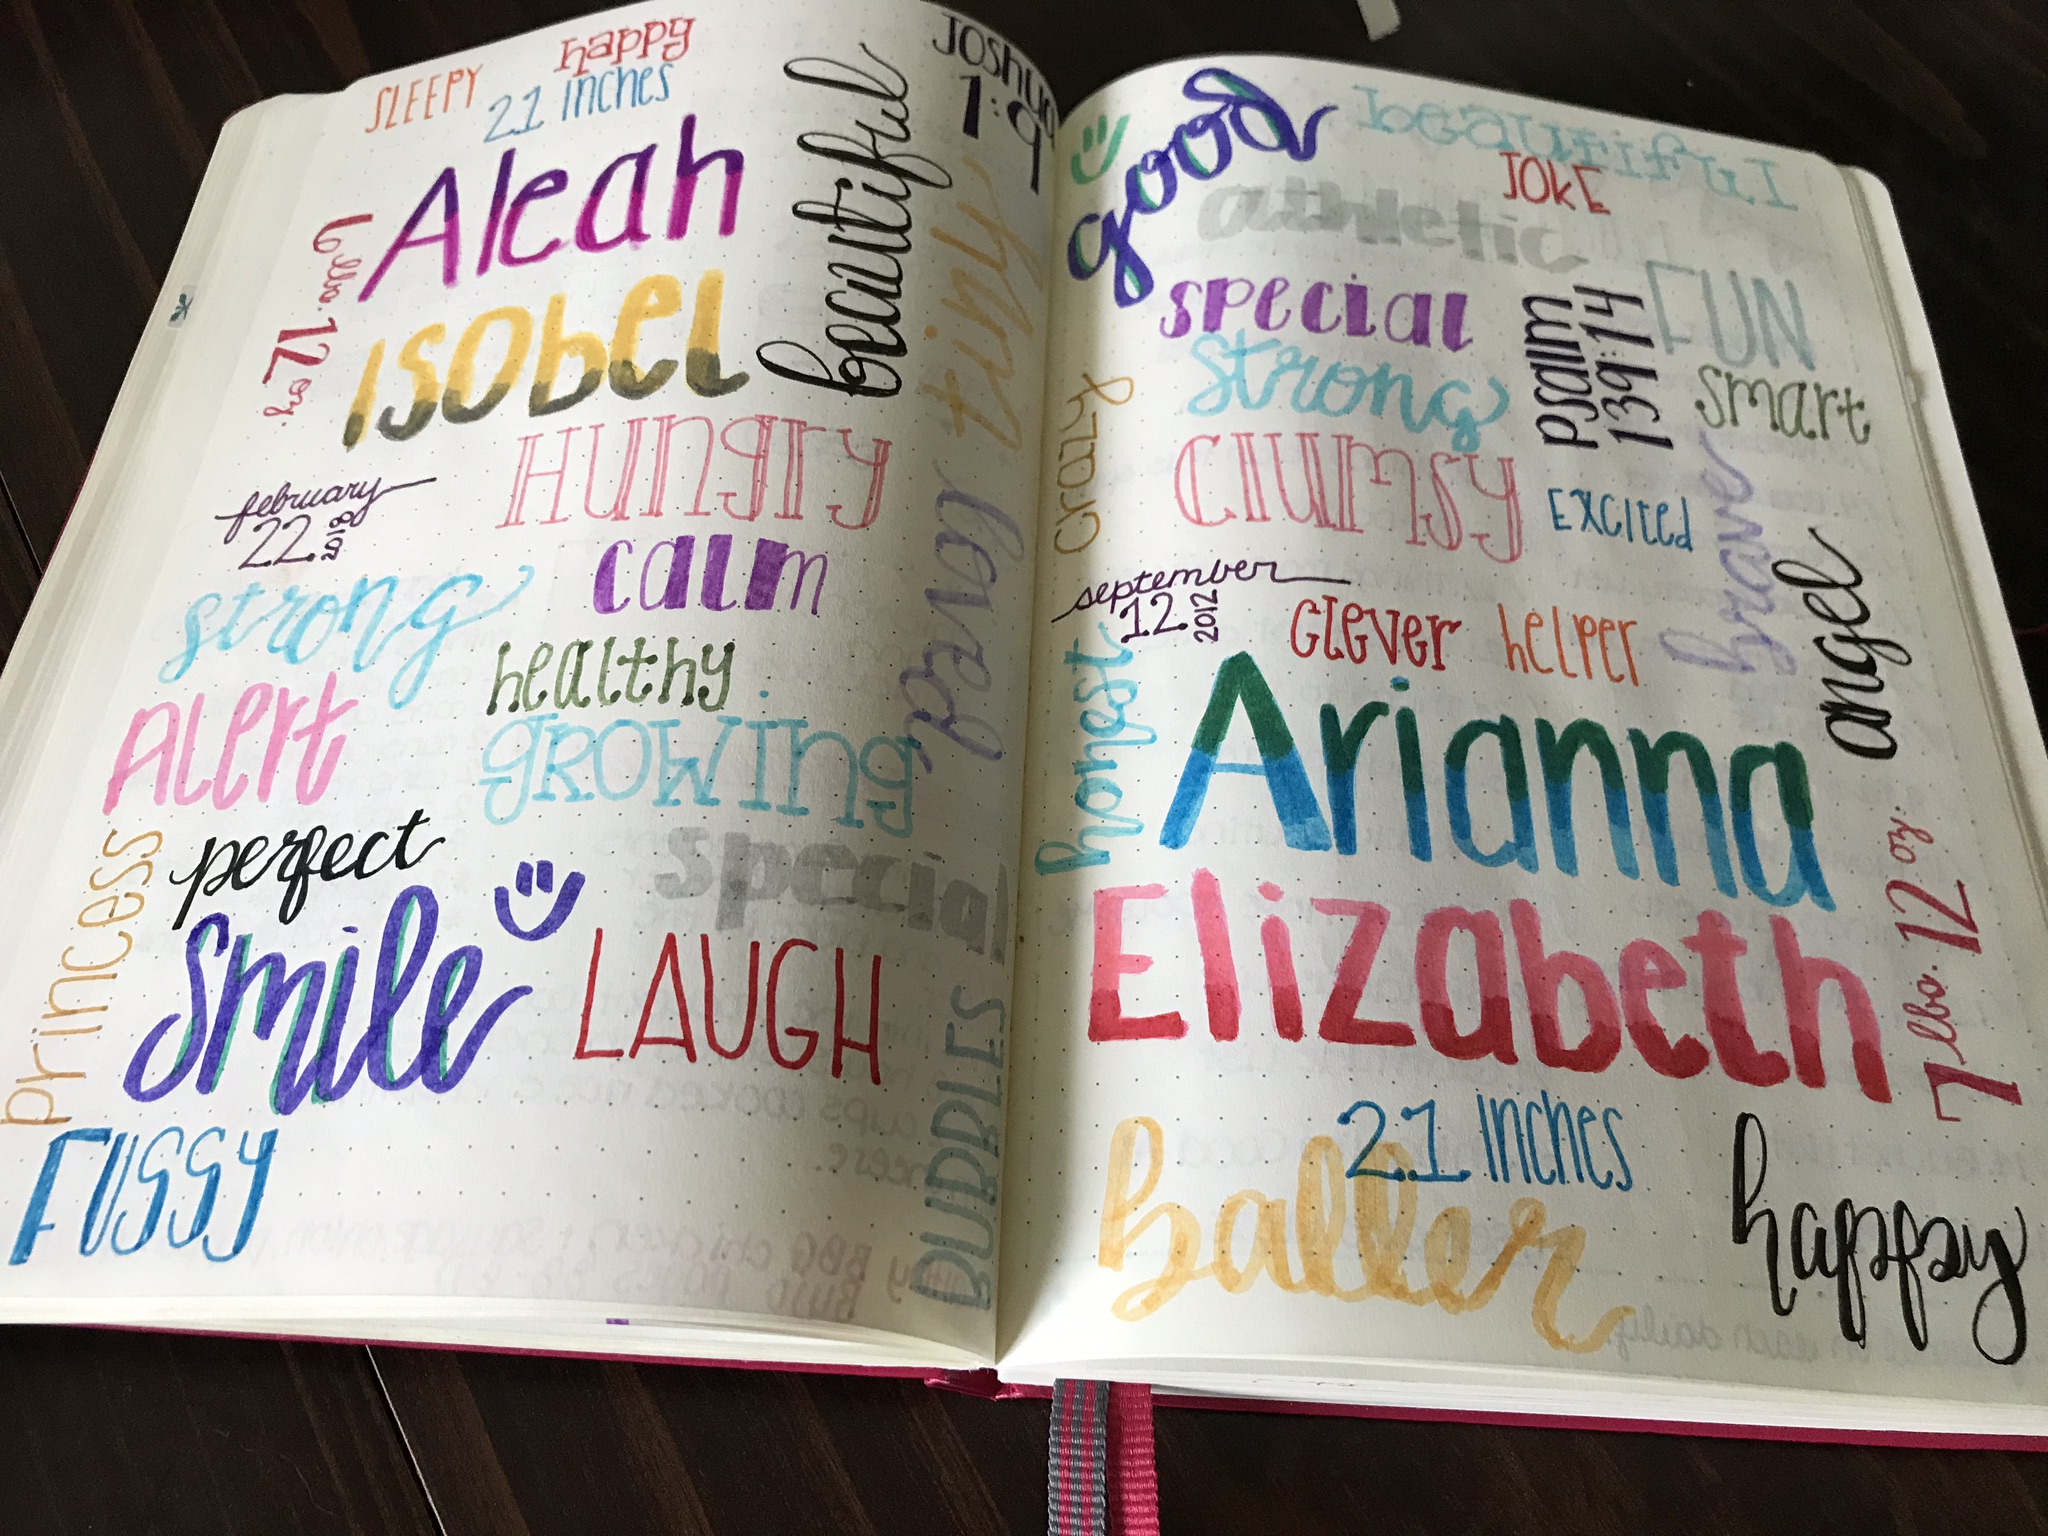 happy
SLEEPY
21 inches
Aleah
6 lbs. 12 oz.
Isobel
beautiful
Joshua
1:9
tiny
Hungry
february
22 2018
calm
loved
strong
healthy
Alert
growing
perfect
special
princess
smile
LAUGH
BUBBLES
FUSSY
good
beautiful
JOKE
athletic
special
Psalm
139:14
FUN
strong
smart
crazy
Clumsy
Excited
brave
angel
september
12 2012
clever
helper
honest
Arianna
Elizabeth
7 lbs. 12 oz.
21 inches
baller
happy